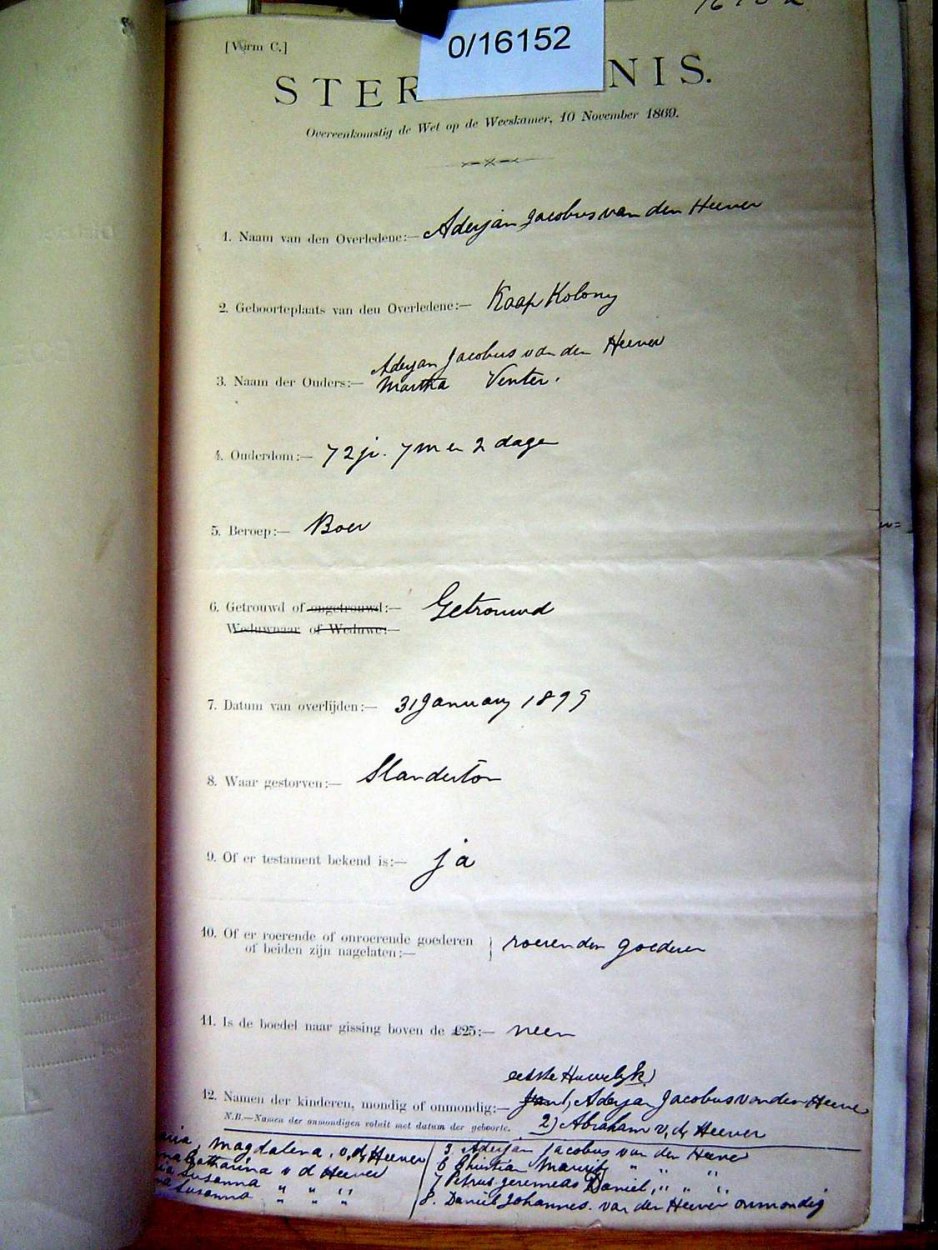 16152
0/16152
[Vorm C.]
STER NIS.
Overeenkomstig de Wet op de Weeskamer, 10 November 1869.
1. Naam van den Overledene:— Aderjan Jacobus van den Heever
2. Geboorteplaats van den Overledene:— Kaap Kolony
Aderjan Jacobus van den Heever
3. Naam der Ouders:— Martha Venter.
4. Ouderdom:— 72 jr. 7 m en 2 dage
5. Beroep:— Boer
6. Getrouwd of ongetrouwd:— Getrouwd
Weduwnaar of Weduwe:—
7. Datum van overlijden:— 31 January 1899
8. Waar gestorven:— Standerton
9. Of er testament bekend is:— ja
10. Of er roerende of onroerende goederen
of beiden zijn nagelaten:— roerenden goederen
11. Is de boedel naar gissing boven de £25:— neen
eerste Huwelyk)
12. Namen der kinderen, mondig of onmondig:— 1, Aderjan Jacobus van den Heever
N.B.—Namen der onmondigen voluit met datum der geboorte. 2) Abraham v, d, Heever
Magdalena v, d, Heever
Catharina v d Heever
Susanna " " "
Susanna " " "
Aderjan Jacobus van der Heever
6 Christian " " "
7 Petrus Jeremeas Daniel, " " "
8. Daniel Johannes. van der Heever onmondig